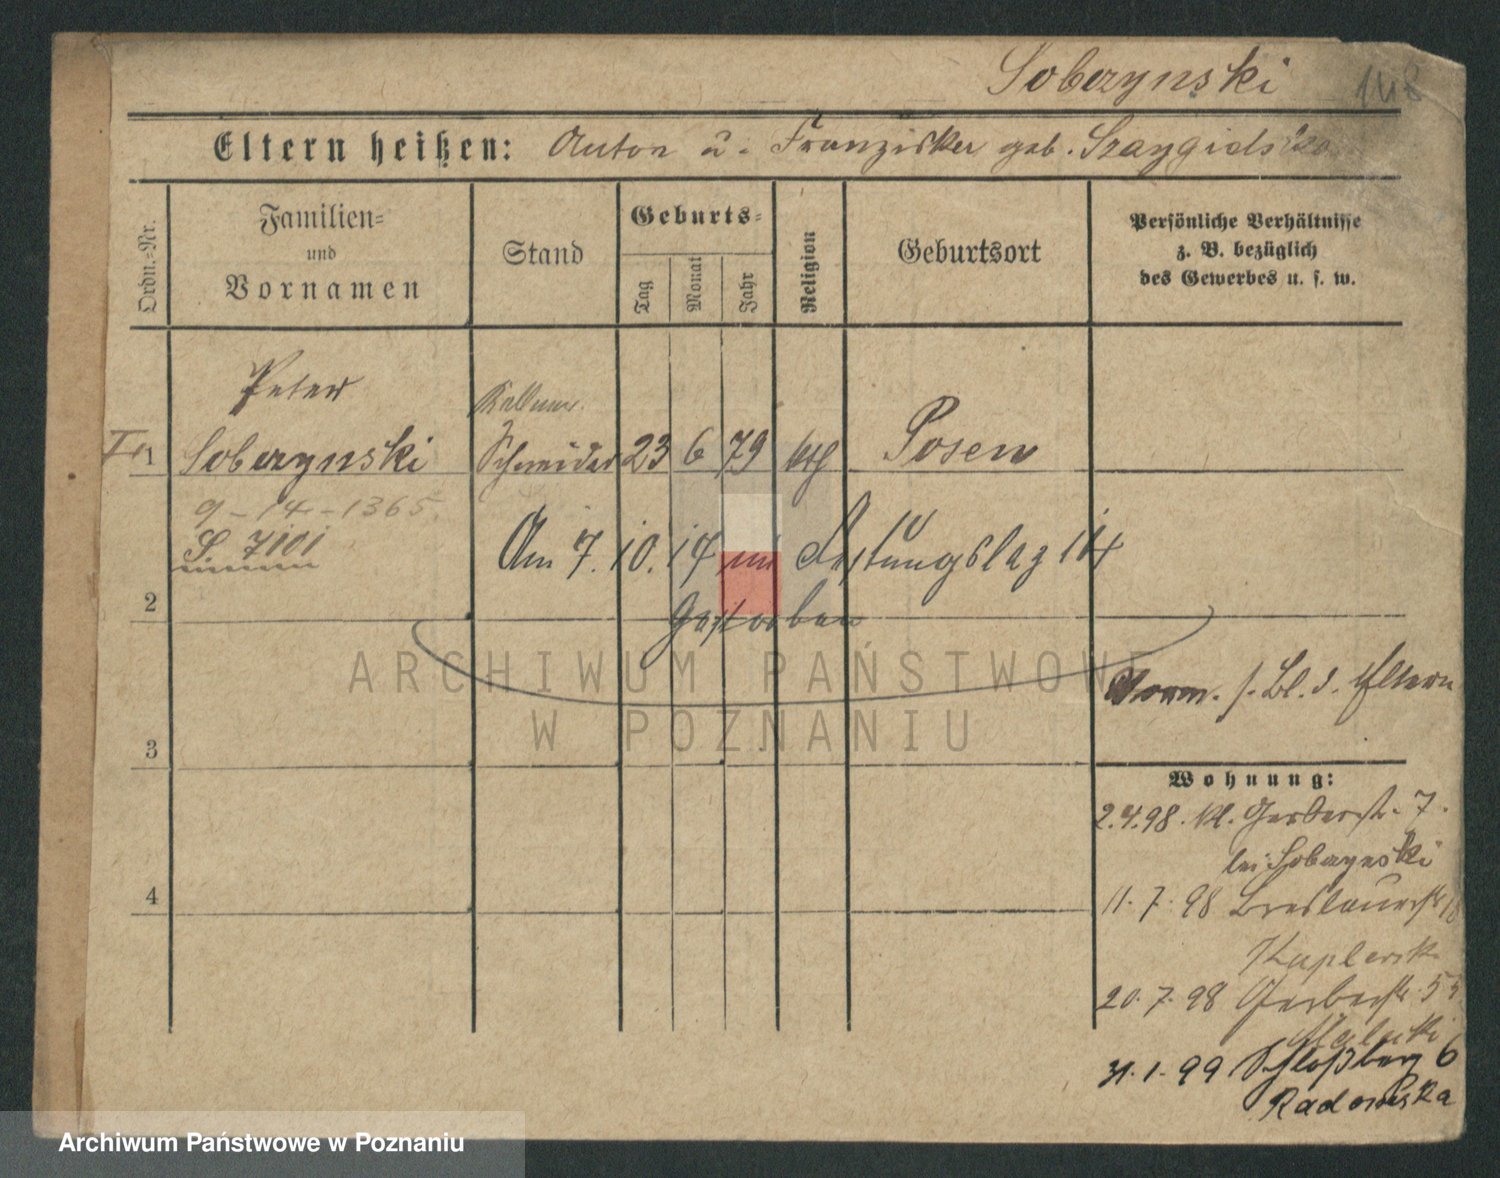 Sobczynski 148
Eltern heißen: Anton u. Franziska geb.
Ordn.=Nr.
Familien=
und
Vornamen
Stand
Geburts=
Tag
Monat
Jahr
Religion
Geburtsort
Persönliche Verhältnisse
z. B. bezüglich
des Gewerbes u. s. w.
Peter
Kellner
1 Sobczynski Schneider 23 6 79 kth Posen
9-14-1365
S. 7101
Am 7. 10. 14 im Festungslaz 114
2
gestorben
ARCHIWUM PAŃSTWOWE
W POZNANIU
Vorm. s. Bl. d. Eltern
3
Wohnung:
2.4.98. kl. Gerberstr. 7.
bei Sobczynski
4
11.7.98 Breslauerstr 18
20.7.98 Gerberstr. 53
31.1.99 Schloßberg 6
Radomska
Archiwum Państwowe w Poznaniu